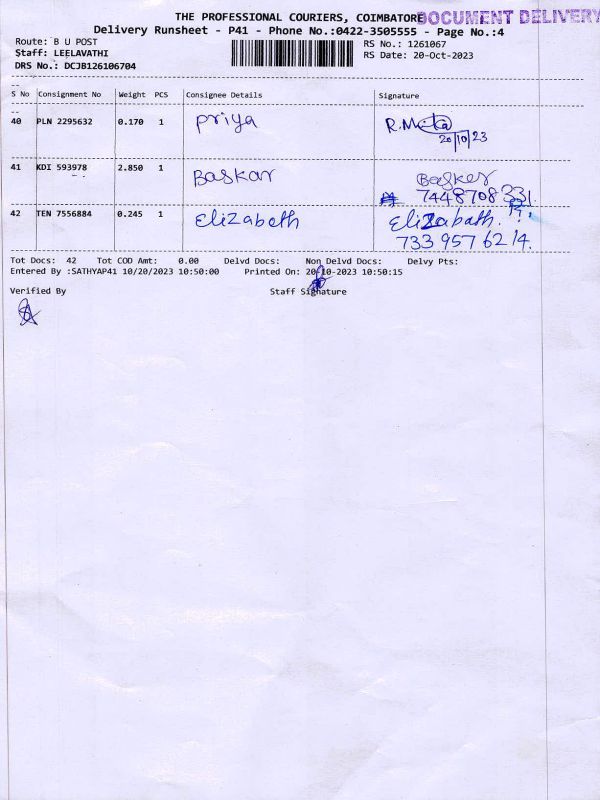 THE PROFESSIONAL COURIERS, COIMBATORE DOCUMENT DELIVERY
Delivery Runsheet - P41 - Phone No.:0422-3505555 - Page No.:4
Route: B U POST RS No.: 1261067
Staff: LEELAVATHI RS Date: 20-Oct-2023
DRS No.: DCJB126106704
S No Consignment No Weight PCS Consignee Details Signature
40 PLN 2295632 0.170 1 Priya R.M
20/10/23
41 KDI 593978 2.850 1 Baskar Basker
7448708331
42 TEN 7556884 0.245 1 Elizabeth Elizabath.
733 957 6214.
Tot Docs: 42 Tot COD Amt: 0.00 Delvd Docs: Non Delvd Docs: Delvy Pts:
Entered By :SATHYAP41 10/20/2023 10:50:00 Printed On: 20-10-2023 10:50:15
Verified By Staff Signature